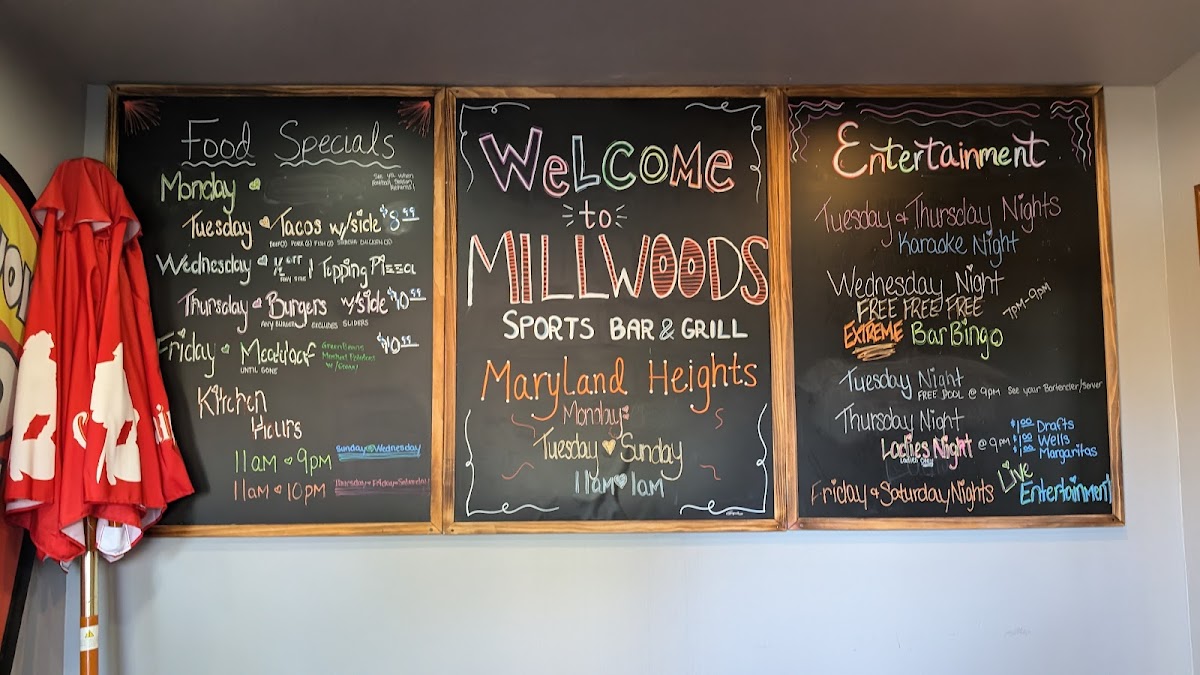 Food Specials
Monday
See ya when
Football Season
Returns!
Tuesday Tacos w/side $8.99
BEEF(3) PORK(3) FISH(2) SRIRACHA CHICKEN(3)
Wednesday ½ OFF 1 Topping Pizza
ANY SIZE
Thursday Burgers w/side $10.99
ANY BURGER EXCLUDES SLIDERS
Friday Meatloaf $10.99
UNTIL GONE
Green Beans
Mashed Potatoes
w/Gravy
Kitchen
Hours
11AM 9PM Sunday Wednesday
11AM 10PM Thursday Friday Saturday
Welcome
to
MILLWOODS
SPORTS BAR & GRILL
Maryland Heights
Monday:
Tuesday Sunday
11am 1am
Entertainment
Tuesday & Thursday Nights
Karaoke Night
Wednesday Night
FREE FREE FREE 7PM-9PM
EXTREME Bar Bingo
Tuesday Night
FREE POOL @ 9PM See your Bartender/Server
Thursday Night
Ladies Night @ 9PM
Ladies Only
$1.00 Drafts
$1.00 Wells
$1.00 Margaritas
Friday & Saturday Nights Live
Entertainment